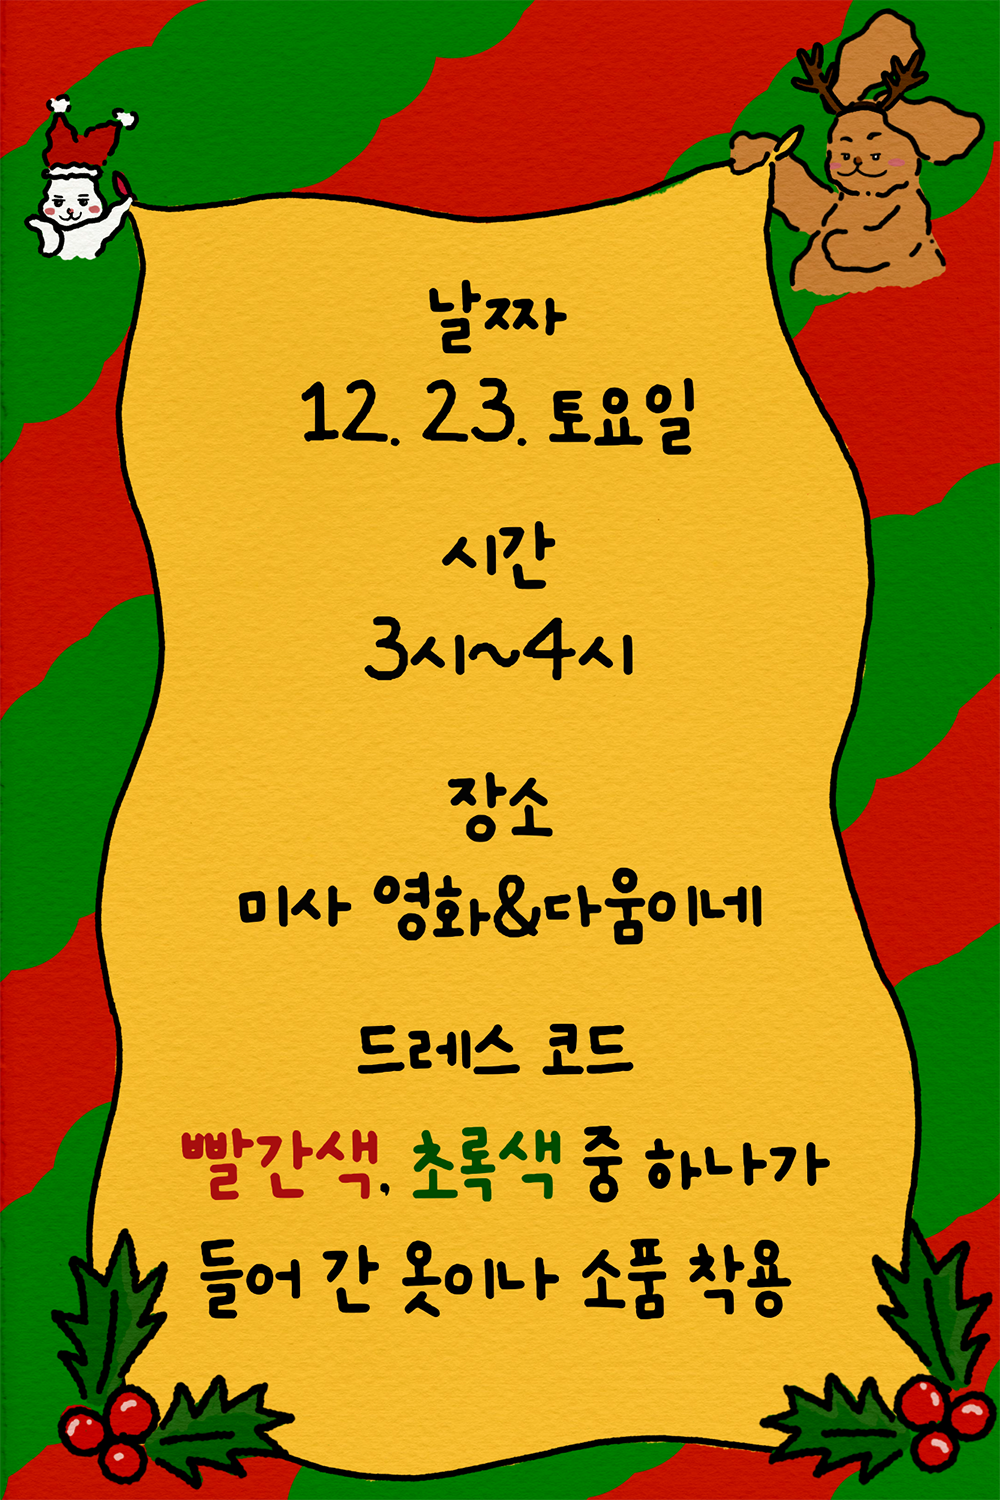 날짜
12. 23. 토요일
시간
3시~4시
장소
미사 영화&다움이네
드레스 코드
빨간색, 초록색 중 하나가
들어 간 옷이나 소품 착용